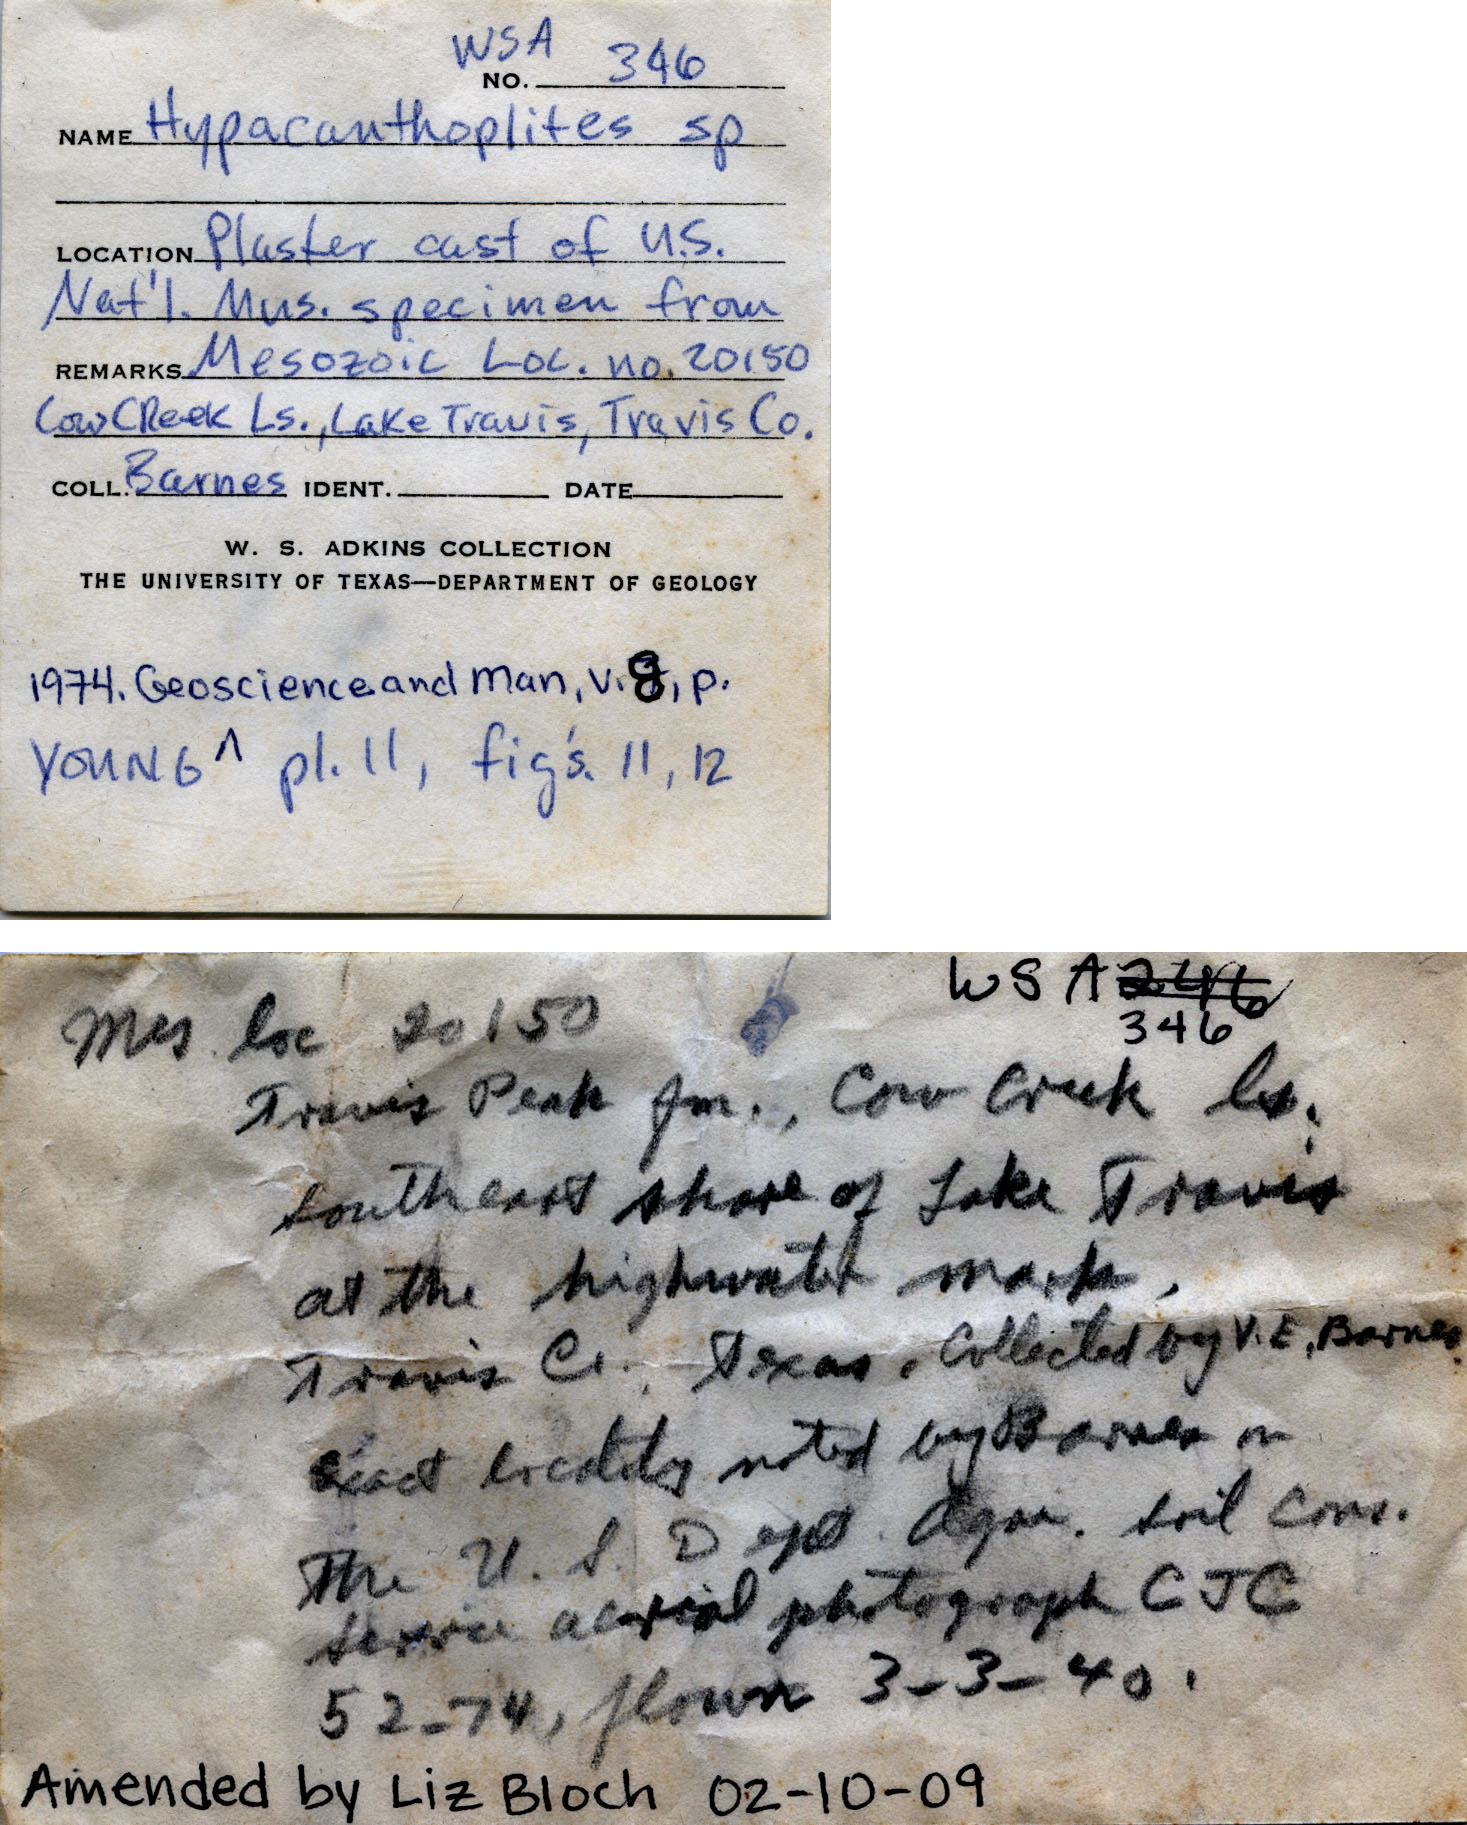 WSA
NO. 346
NAME Hypacanthoplites sp
LOCATION Plaster cast of U.S.
Nat'l. Mus. specimen from
REMARKS Mesozoic Loc. no. 20150
Cow Creek Ls., Lake Travis, Travis Co.
COLL. Barnes IDENT. DATE
W. S. ADKINS COLLECTION
THE UNIVERSITY OF TEXAS—DEPARTMENT OF GEOLOGY
1974. Geoscience and Man, v. 8, p.
YOUNG ^ pl. 11, fig's. 11, 12
WSA 246
346
Mes. loc 20150
Travis Peak fm., Cow Creek ls.;
southeast shore of Lake Travis
at the highwater mark,
Travis Co., Texas. Collected by V. E. Barnes.
exact locality noted by Barnes on
the U. S. Dept. Agri. soil Cons.
service aerial photograph CJC
52-74, flown 3-3-40.
Amended by Liz Bloch 02-10-09